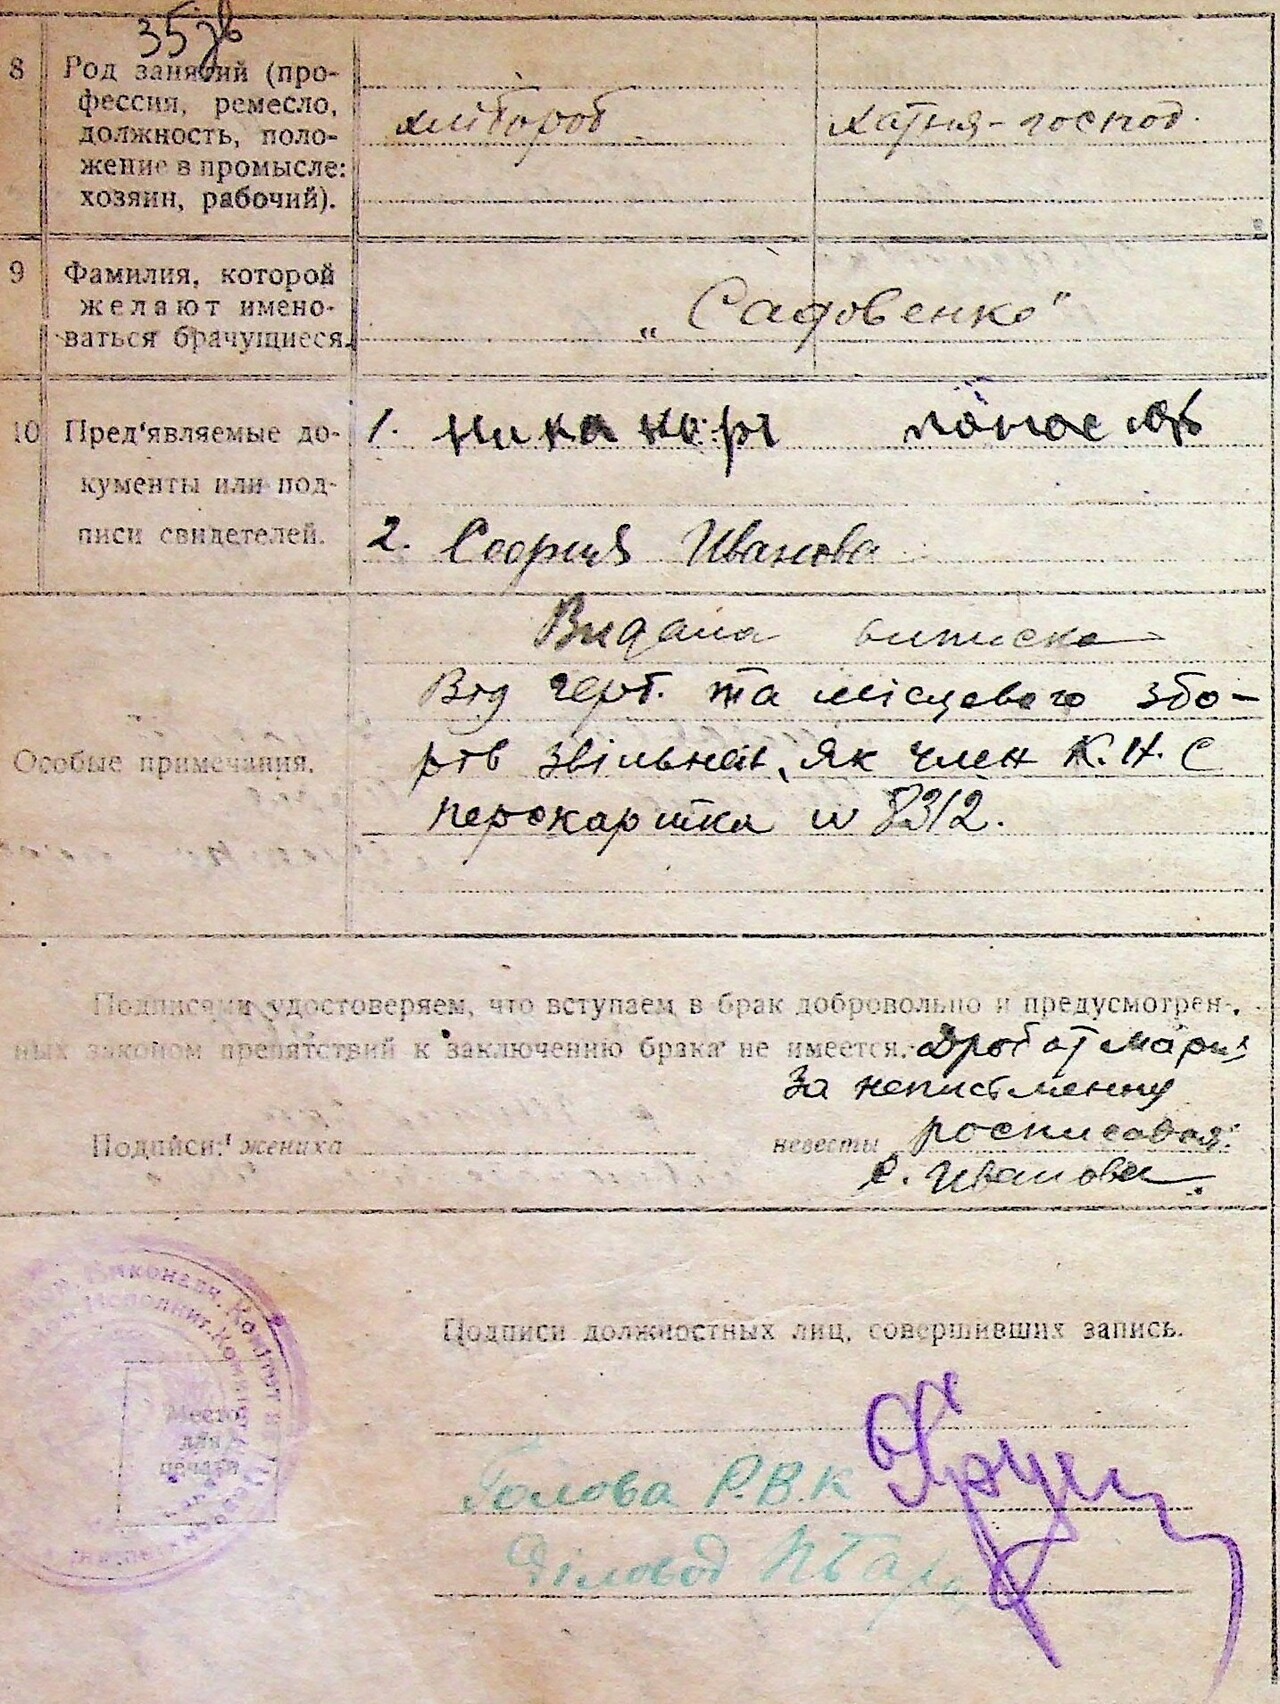 35 зв
8 Род занятий (про-
фессия, ремесло,
должность, поло-
жение в промысле:
хозяин, рабочий).
хлібороб
хатня-господ.
9 Фамилия, которой
желают имено-
ваться брачущиеся.
„Садовенко"
10 Пред'являемые до-
кументы или под-
писи свидетелей.
1. Никаноръ
2. София Иванова
Особые примечания.
Видана виписка
Від герб. та місцевого збо-
рів звільнен, як член К.Н.С
перокаритка №8312.
Подписями удостоверяем, что вступаем в брак добровольно и предусмотрен-
ных законом препятствий к заключению брака не имеется.
Дробот Мария
За неписьменну
росписовая
С. Иванова
Подписи: жениха
невесты
Подписи должностных лиц, совершивших запись.
Голова Р.В.К
Діловод
Виконавч. Комітет
Исполнит. Комитет
Место
для
печати